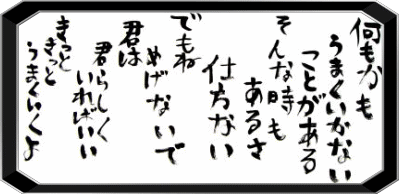 何もかも
うまくいかない
ことがある
そんな時も
あるさ
仕方ない
でもね
めげないで
君は
君らしく
いればいい
きっと
きっと
うまくいくよ